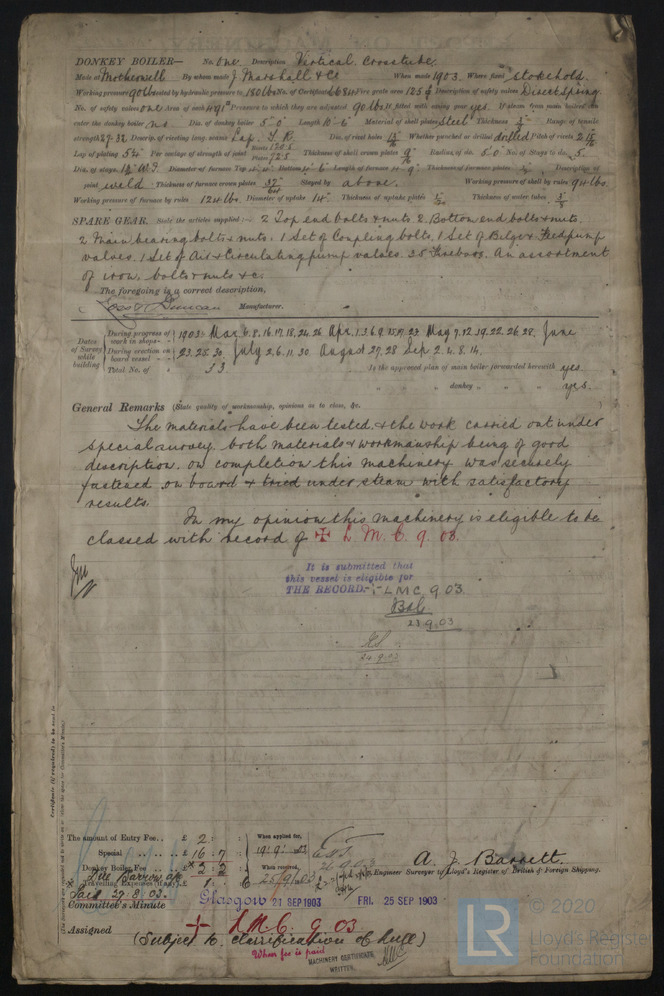 DONKEY BOILER— No. One Description Virtical Crosstube.
Made at Motherwell By whom made J. Marshall & Co When made 1903. Where fixed Stokehold.
Working pressure 90 lbs tested by hydraulic pressure to 180 lbs No. of Certificate 6684 Fire grate area 12.5 Description of safety valves Direct Spring.
No. of safety valves one Area of each 4.91" Pressure to which they are adjusted 90 lbs If fitted with easing gear yes. If steam from main boilers can
enter the donkey boiler no. Dia. of donkey boiler 5'-0" Length 10'-6" Material of shell plates Steel Thickness Range of tensile
strength 27-32 Descrip. of riveting long. seams Lap. T.R. Dia. of rivet holes Whether punched or drilled drilled Pitch of rivets
Lap of plating Per centage of strength of joint Rivets 120.5 Plates 72.5 Thickness of shell crown plates Radius of do. 5'.0" No. of Stays to do. 5.
Dia. of stays Diameter of furnace Top Bottom Length of furnace Thickness of furnace plates Description of
joint weld. Thickness of furnace crown plates Stayed by above. Working pressure of shell by rules 94 lbs.
Working pressure of furnace by rules 124 lbs. Diameter of uptake 14" Thickness of uptake plates Thickness of water tubes
SPARE GEAR. State the articles supplied:— 2 Top end bolts & nuts 2 Bottom end bolts & nuts.
2 Main bearing bolts & nuts. 1 Set of Coupling bolts. 1 Set of Bilge & Feed pump
valves. 1 Set of Air & Circulating pump valves. 38 Firebars. An assortment
of iron, bolts & nuts &c.
The foregoing is a correct description,
Ross & Duncan Manufacturer.
Dates of Survey while building
During progress of work in shops— 1903. Mar. 4. 8. 16. 17. 18. 24. 26 Apr. 1. 3. 6. 9. 15. 17. 23 May 7. 12. 19. 22. 26. 28. June
During erection on board vessel— 23. 25. 30. July 2. 6. 11. 30. August 27. 28 Sep 2. 4. 8. 14.
Total No. of 33 Is the approved plan of main boiler forwarded herewith yes
" " " donkey " " " yes.
General Remarks (State quality of workmanship, opinions as to class, &c.
The materials have been tested, & the work carried out under
special survey. both materials & workmanship being of good
description. on completion this machinery was securely
fastened on board & tried under steam with satisfactory
results.
In my opinion this machinery is eligible to be
classed with record of ✠ L.M.C. 9.03.
It is submitted that
this vessel is eligible for
THE RECORD. + LMC 9.03.
23.9.03
24.9.03
Certificate (if required) to be sent to
The amount of Entry Fee.. £ 2 : : When applied for,
Special .. .. £ 16 : 7 : 19.9.03
Donkey Boiler Fee .. £ 2 : 2 When received,
Travelling Expenses (if any) £ : : 25/9/03
Paid 27.8.03.
A. J. Barrett.
Engineer Surveyor to Lloyd's Register of British & Foreign Shipping.
Committee's Minute Glasgow 21 SEP 1903 FRI. 25 SEP 1903
Assigned + L.M.C. 9.03
(Subject to classification of hull)
When fee is paid
MACHINERY CERTIFICATE
WRITTEN.
LR © 2020
Lloyd's Register
Foundation